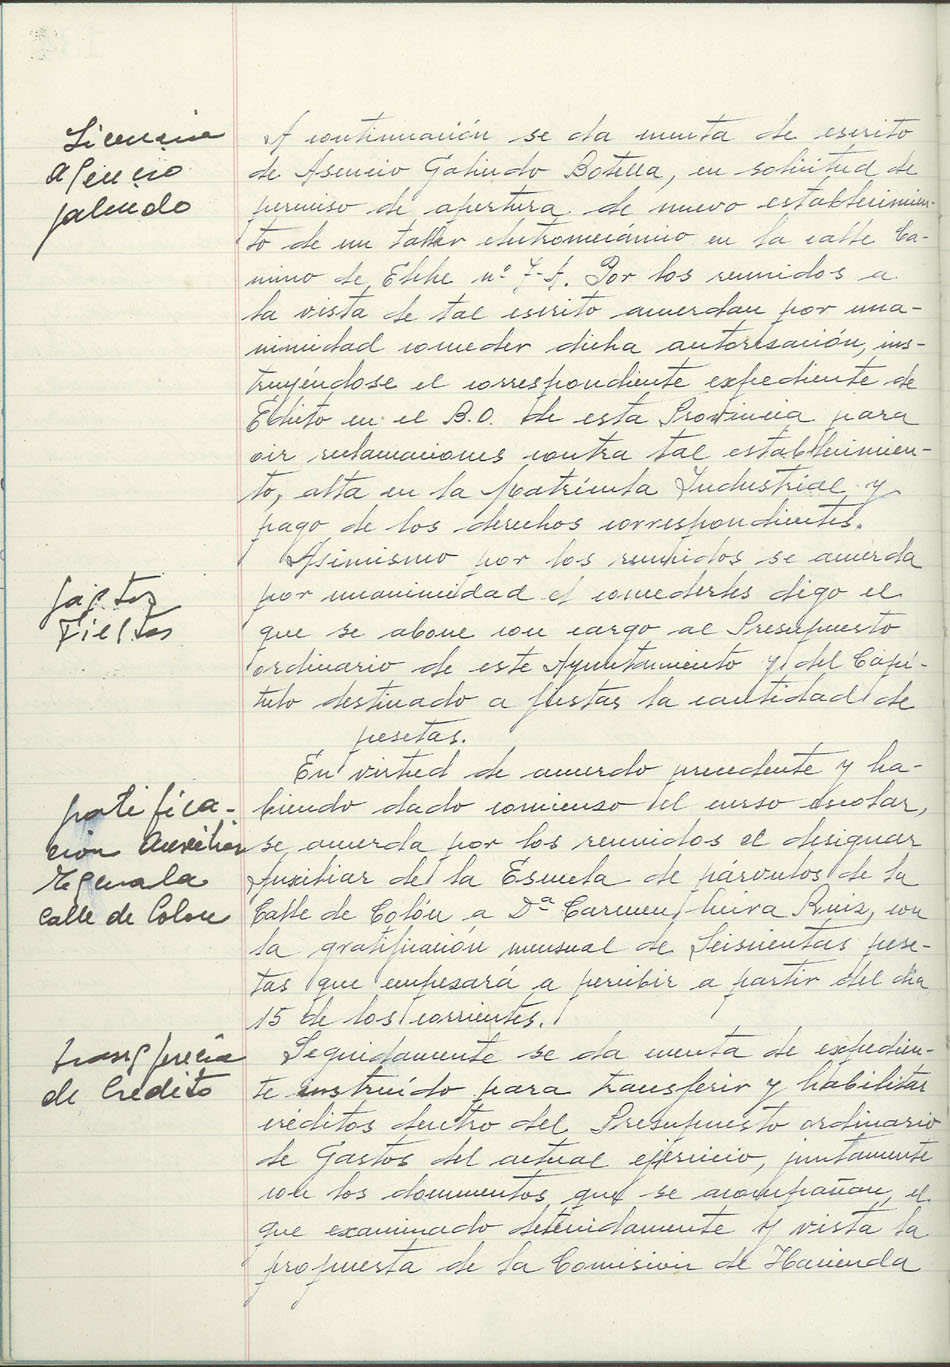 Licencia
Asencio
Galindo
A continuación se da cuenta de escrito
de Asencio Galindo Botella, en solicitud de
permiso de apertura de nuevo establecimien-
to de un taller electromecánico en la calle Ca-
mino de Elche nº 7-A. Por los reunidos a
la vista de tal escrito acuerdan por una-
nimidad conceder dicha autorización, ins-
truyéndose el correspondiente expediente de
Edicto en el B.O. de esta Provincia para
oir reclamaciones contra tal establecimien-
to, alta en la Matrícula Industrial y
pago de los derechos correspondientes.
Gastos
Fiestas
Asimismo por los reunidos se acuerda
por unanimidad el concederles digo el
que se abone con cargo al Presupuesto
ordinario de este Ayuntamiento y del Capí-
tulo destinado a fiestas la cantidad de
pesetas.
gratifica-
ción Auxiliar
Escuela
calle de Colon
En virtud de acuerdo precedente y ha-
biendo dado comienzo el curso escolar,
se acuerda por los reunidos el designar
Auxiliar de la Escuela de párvulos de la
Calle de Colón a Dª Carmen Ruiz, con
la gratificación mensual de Seiscientas pese-
tas que empezará a percibir a partir del dia
15 de los corrientes.
transferecia
de Credito
Seguidamente se da cuenta de expedien-
te instruído para transferir y habilitar
créditos dentro del Presupuesto ordinario
de Gastos del actual ejercicio, juntamente
con los documentos que se acompañan, el
que examinado detenidamente y vista la
propuesta de la Comision de Hacienda